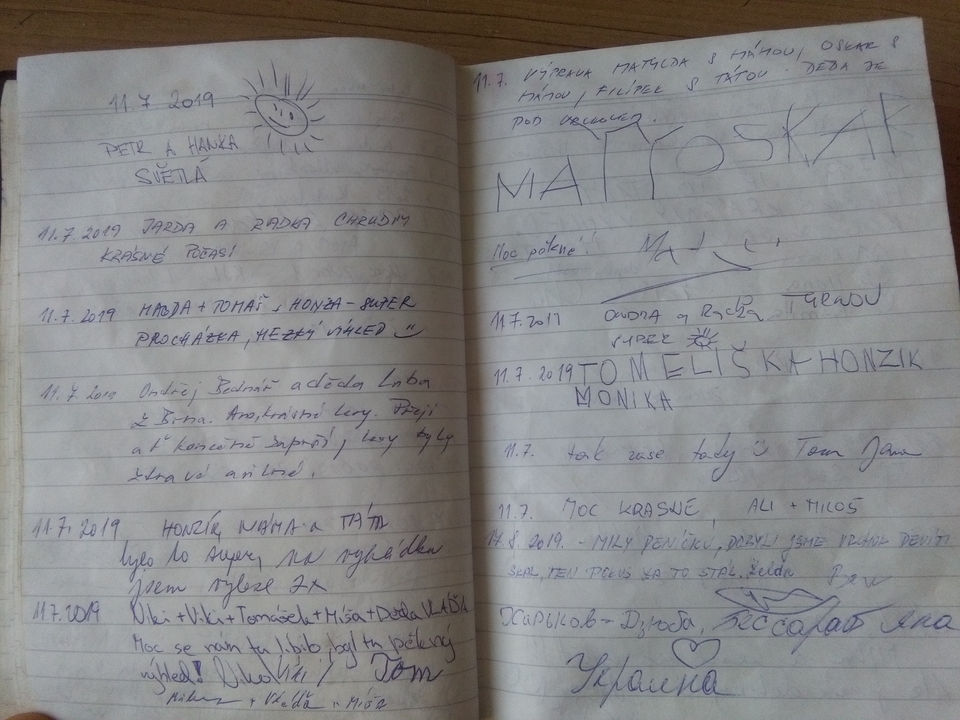 11.7 2019
PETR A HANKA
SVĚTLÁ
11.7 2019 JARDA A RADKA CHRUDIM
KRÁSNÉ POČASÍ
11.7.2019 MAGDA + TOMÁŠ, HONZA - SUPER
PROCHÁZKA, HEZKÝ VÝHLED
11.7 2019 Ondřej Bednář a děda Luba
z Brna. Ano, krásné lesy. Přeji
ať konečně zaprší, lesy byly
zdravé a silné.
11.7.2019 HONZÍK, MÁMA a TÁTA
bylo to super, na vyhlídku
jsem vylezl 2x
11.7.2019 Viki + Viki + Tomášek + Míša + Děda VLÁĎA
Moc se nám tu líbilo, byl tu pěkný
výhled! Tom
+ Vláďa + Míša
11.7. VÝPRAVA MATYLDA S MÁMOU, OSKAR S
MÁMOU, FILÍPEK S TÁTOU. DĚDA JE
POD VRCHOLEM.
MATY OSKAR
Moc pěkné!
11.7.2019 ONDRA a Radka TURNOV
SUPER
11.7.2019 TOM ELIŠKA HONZÍK
MONIKA
11.7. tak zase tady Tom Jana
11.7. MOC KRÁSNÉ, ALI + MILOŠ
2019. - MILÝ DENÍČKU, DOBYLI JSME VRCHOL DEVÍTI
SKAL, TEN POKUS ZA TO STÁL.
Харьков - Дзюба, Бессараб Яна
Украина